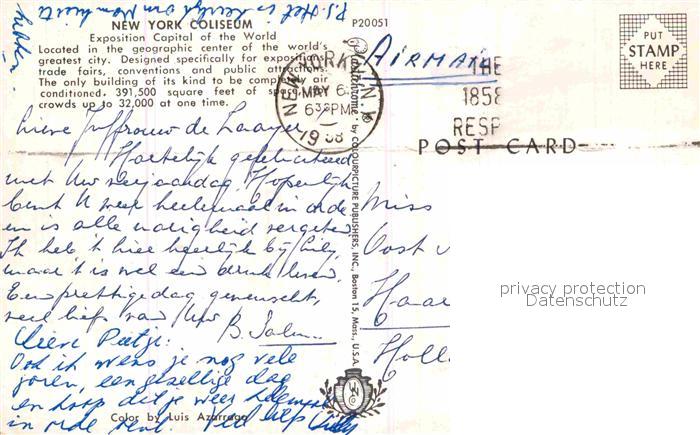 P.S. Het is heerlijk om Mam weer te
hebben.
NEW YORK COLISEUM
Exposition Capital of the World
Located in the geographic center of the world's
greatest city. Designed specifically for expositions,
trade fairs, conventions and public attractions.
The only building of its kind to be completely air
conditioned. 391,500 square feet of space
crowds up to 32,000 at one time.
P20051
NEW YORK, N.Y.
MAY 6
630PM
1958
THE
1858
RESP
AIRMAIL
PUT
STAMP
HERE
POST CARD
Lieve Juffrouw de
Hartelijk gefeliciteerd
met Uw verjaardag. Hopelijk
bent U weer helemaal in orde
en is alle narigheid vergeten.
Ik heb 't hier heerlijk bij Lily,
maar 't is wel een druk leven.
Een prettige dag gewenscht,
veel liefs van Uw
B.
Lieve Peetje.
Ook ik wens je nog vele
jaren, een gezellige dag
en hoop dat je weer helemaal
in orde bent. Veel liefs Lily
Color by Luis Azarraga
Plastichrome ® by COLOURPICTURE PUBLISHERS, INC., Boston 15, Mass., U.S.A.
Miss
Oost
Haar
Holl
privacy protection
Datenschutz